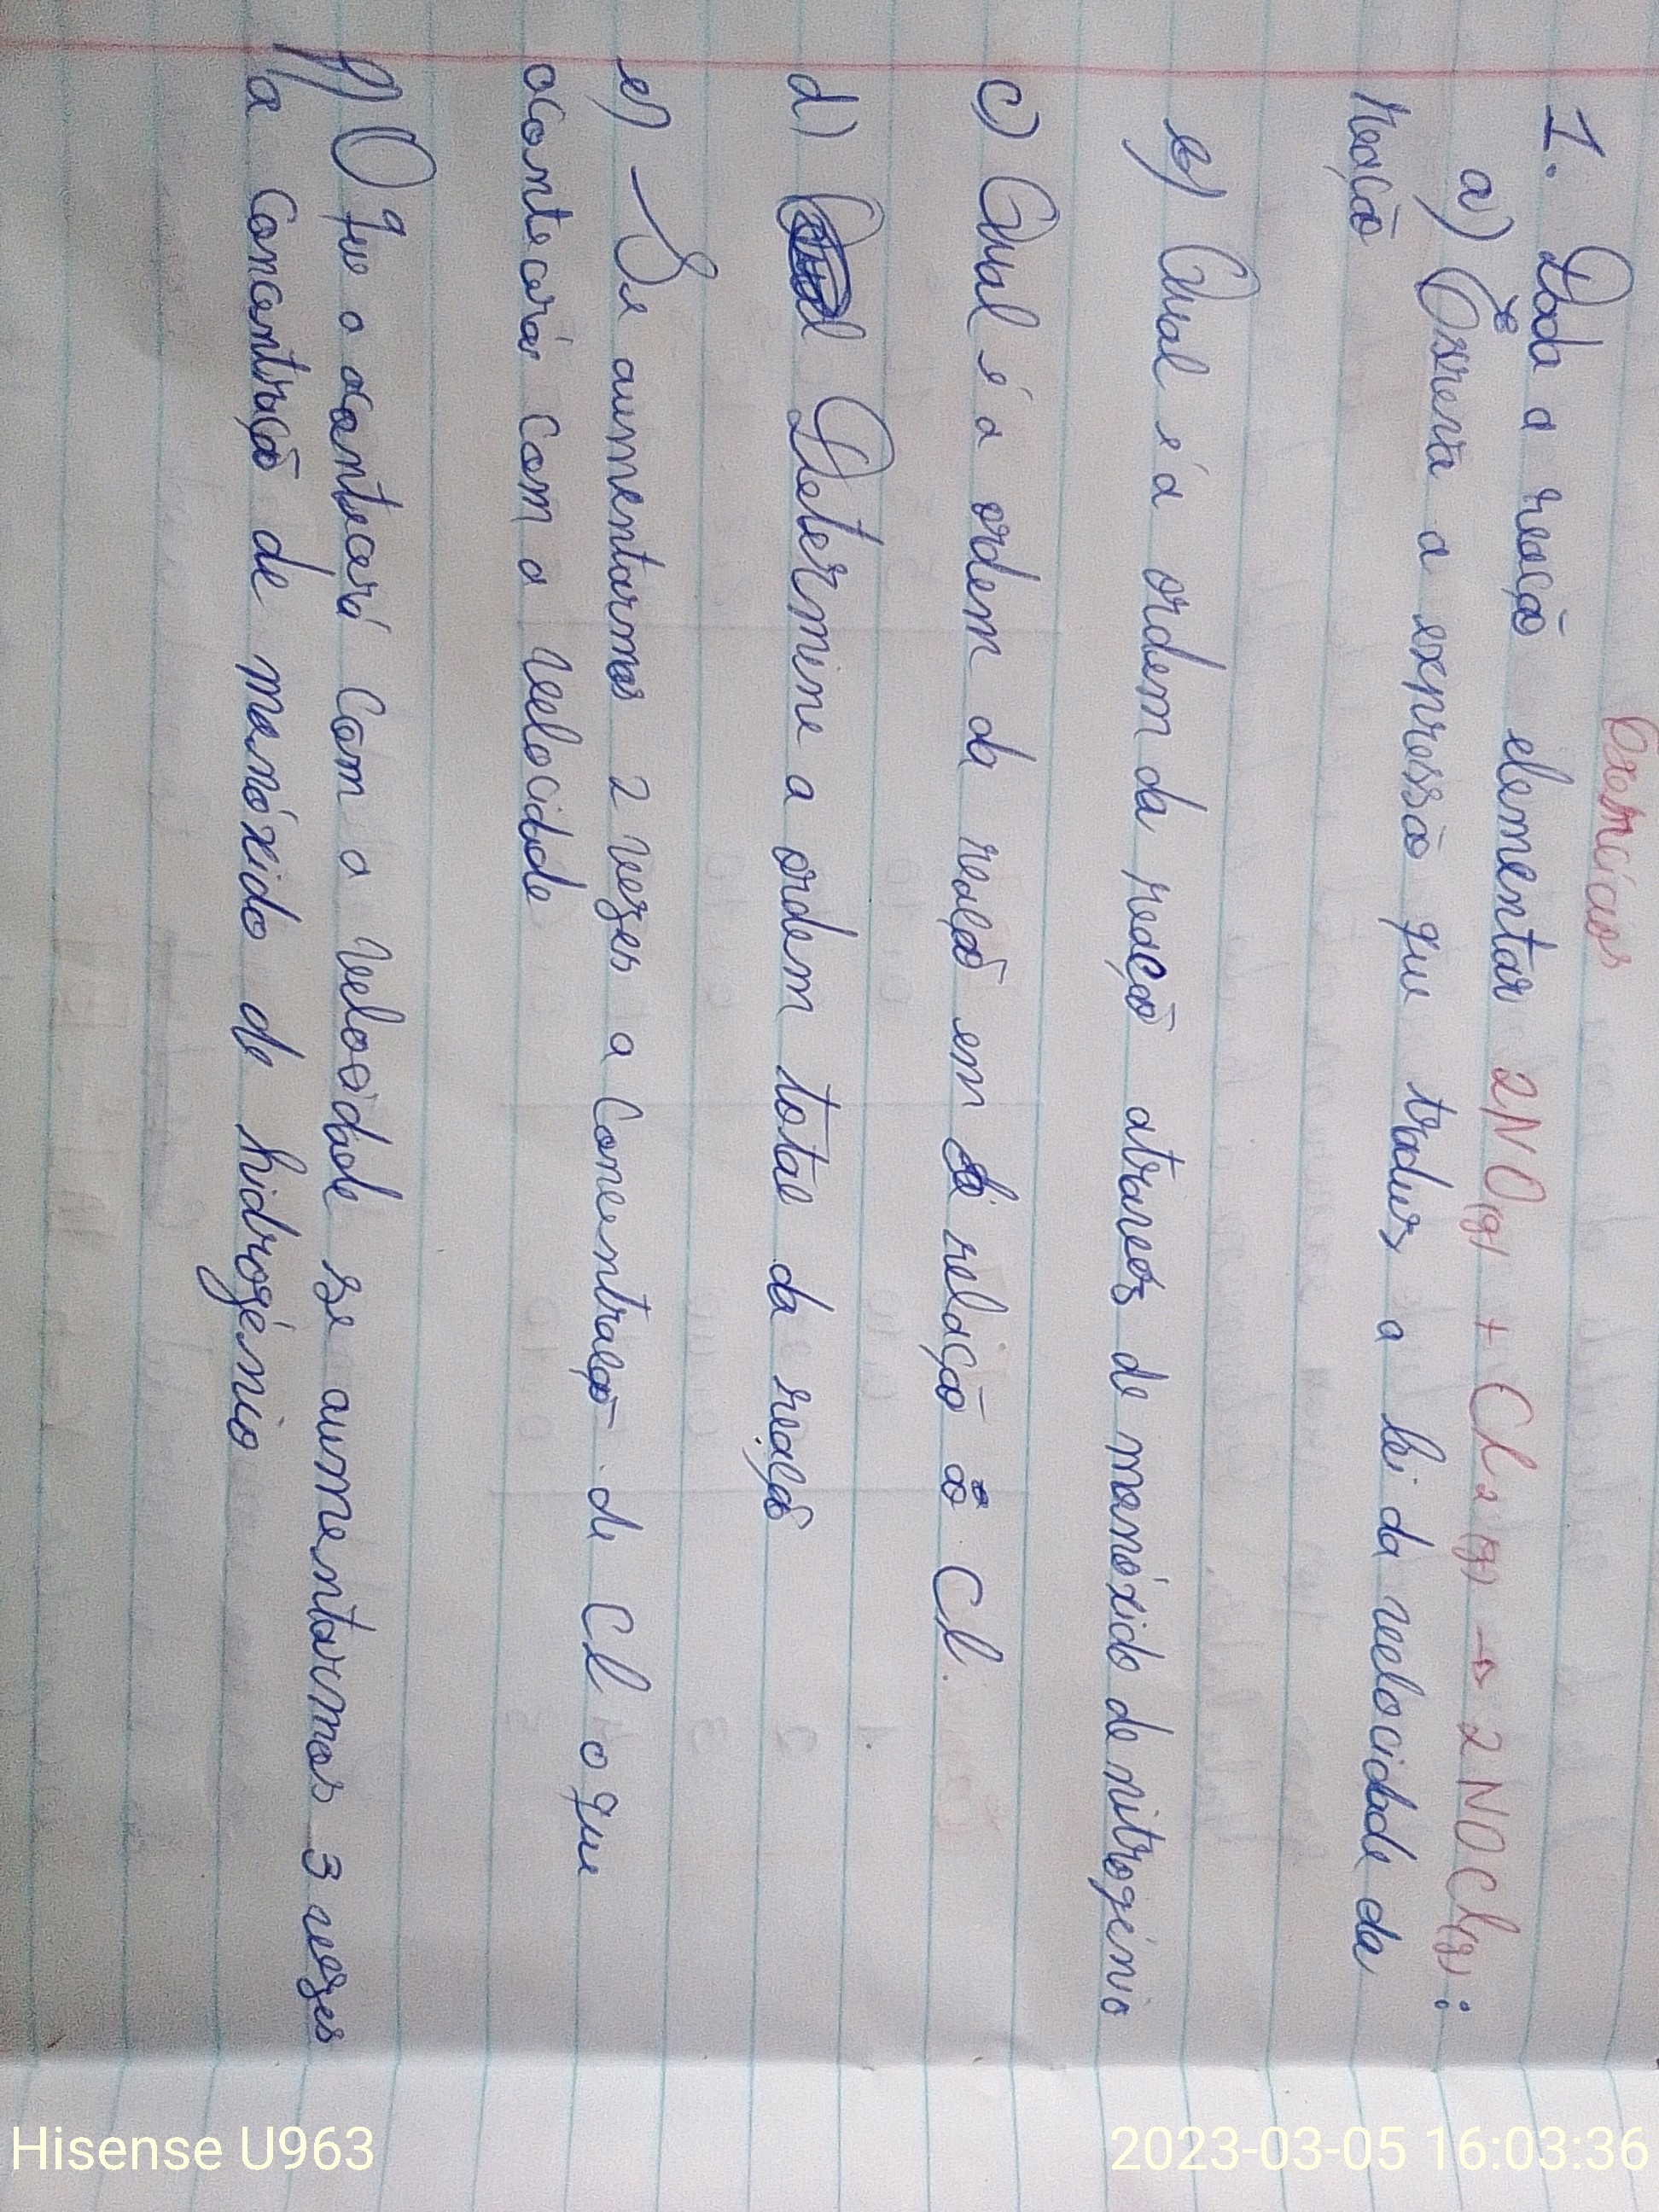 Exercicios
1. Dada a reacção elementar 2NO(g) + Cl2(g) → 2NOCl(g):
a) Escreva a expressão que traduz a lei da velocidade da
reação
b) Qual é a ordem da reacção atravez de monóxido de nitrogénio
c) Qual é a ordem da reação em relação ao Cl.
d) Determine a ordem total da reação
e) Se aumentarmos 2 vezes a Concentração de Cl o que
acontecerá com a velocidade
f) O que a acontecerá com a velocidade se aumentarmos 3 vezes
a concentração de monóxido de hidrogénio
Hisense U963
2023-03-05 16:03:36